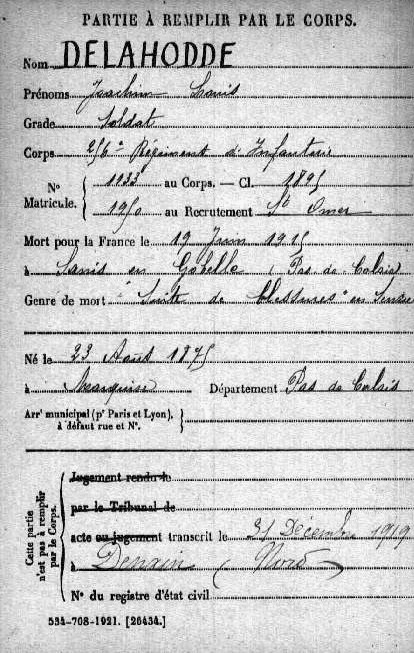 PARTIE À REMPLIR PAR LE CORPS.
Nom DELAHODDE
Prénoms Joachim Louis
Grade Soldat
Corps 256e Régiment d'Infanterie
N° Matricule. { 1133 au Corps. — Cl. 1895
1950 au Recrutement St Omer
Mort pour la France le 19 Juin 1915
à Sains en Gohelle (Pas de Calais)
Genre de mort "Suite de blessures" en
Né le 23 Août 1875
à Marquise Département Pas de Calais
Arr' municipal (p' Paris et Lyon), à défaut rue et N°. }
Cette partie n'est pas à remplir par le Corps.
Jugement rendu le
par le Tribunal de
acte ou jugement transcrit le 31 Décembre 1919
à Denain (Nord)
N° du registre d'état civil
534-708-1921. [26434.]